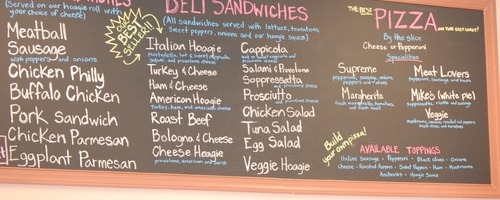 (Served on our hoagie roll with
your choice of cheese)
Meatball
Sausage
with peppers and onions
Chicken Philly
Buffalo Chicken
Pork Sandwich
Chicken Parmesan
Eggplant Parmesan
OUR
BEST
SELLER!!
DELI SANDWICHES
(All sandwiches served with lettuce, tomatoes,
sweet peppers, onions and our hoagie sauce)
Italian Hoagie
Turkey & Cheese
Ham & Cheese
American Hoagie
Turkey, ham, and american cheese
Roast Beef
Bologna & Cheese
Cheese Hoagie
provolone, american and
Cappicola
Salami & Provolone
Sopressatto
Prosciutto
Chicken Salad
Tuna Salad
Egg Salad
Veggie Hoagie
THE BEST
PIZZA
ON THE EAST COAST!
By the slice
Cheese or Pepperoni
Specialties
Supreme
pepperoni, sausage, onions
peppers and olives
Margherita
fresh mozzarella, tomatoes,
and fresh basil
Meat Lovers
pepperoni, Sausage, and ham
Mike's (white pie)
Soppressata, ricotta and sausage
Veggie
Build
your own pizza!
AVAILABLE TOPPINGS
Italian Sausage - Pepperoni - Black Olives - Onions
Cheese - Roasted Peppers - Sweet Peppers - Ham - Mushrooms
Anchovies - Hoagie Sauce